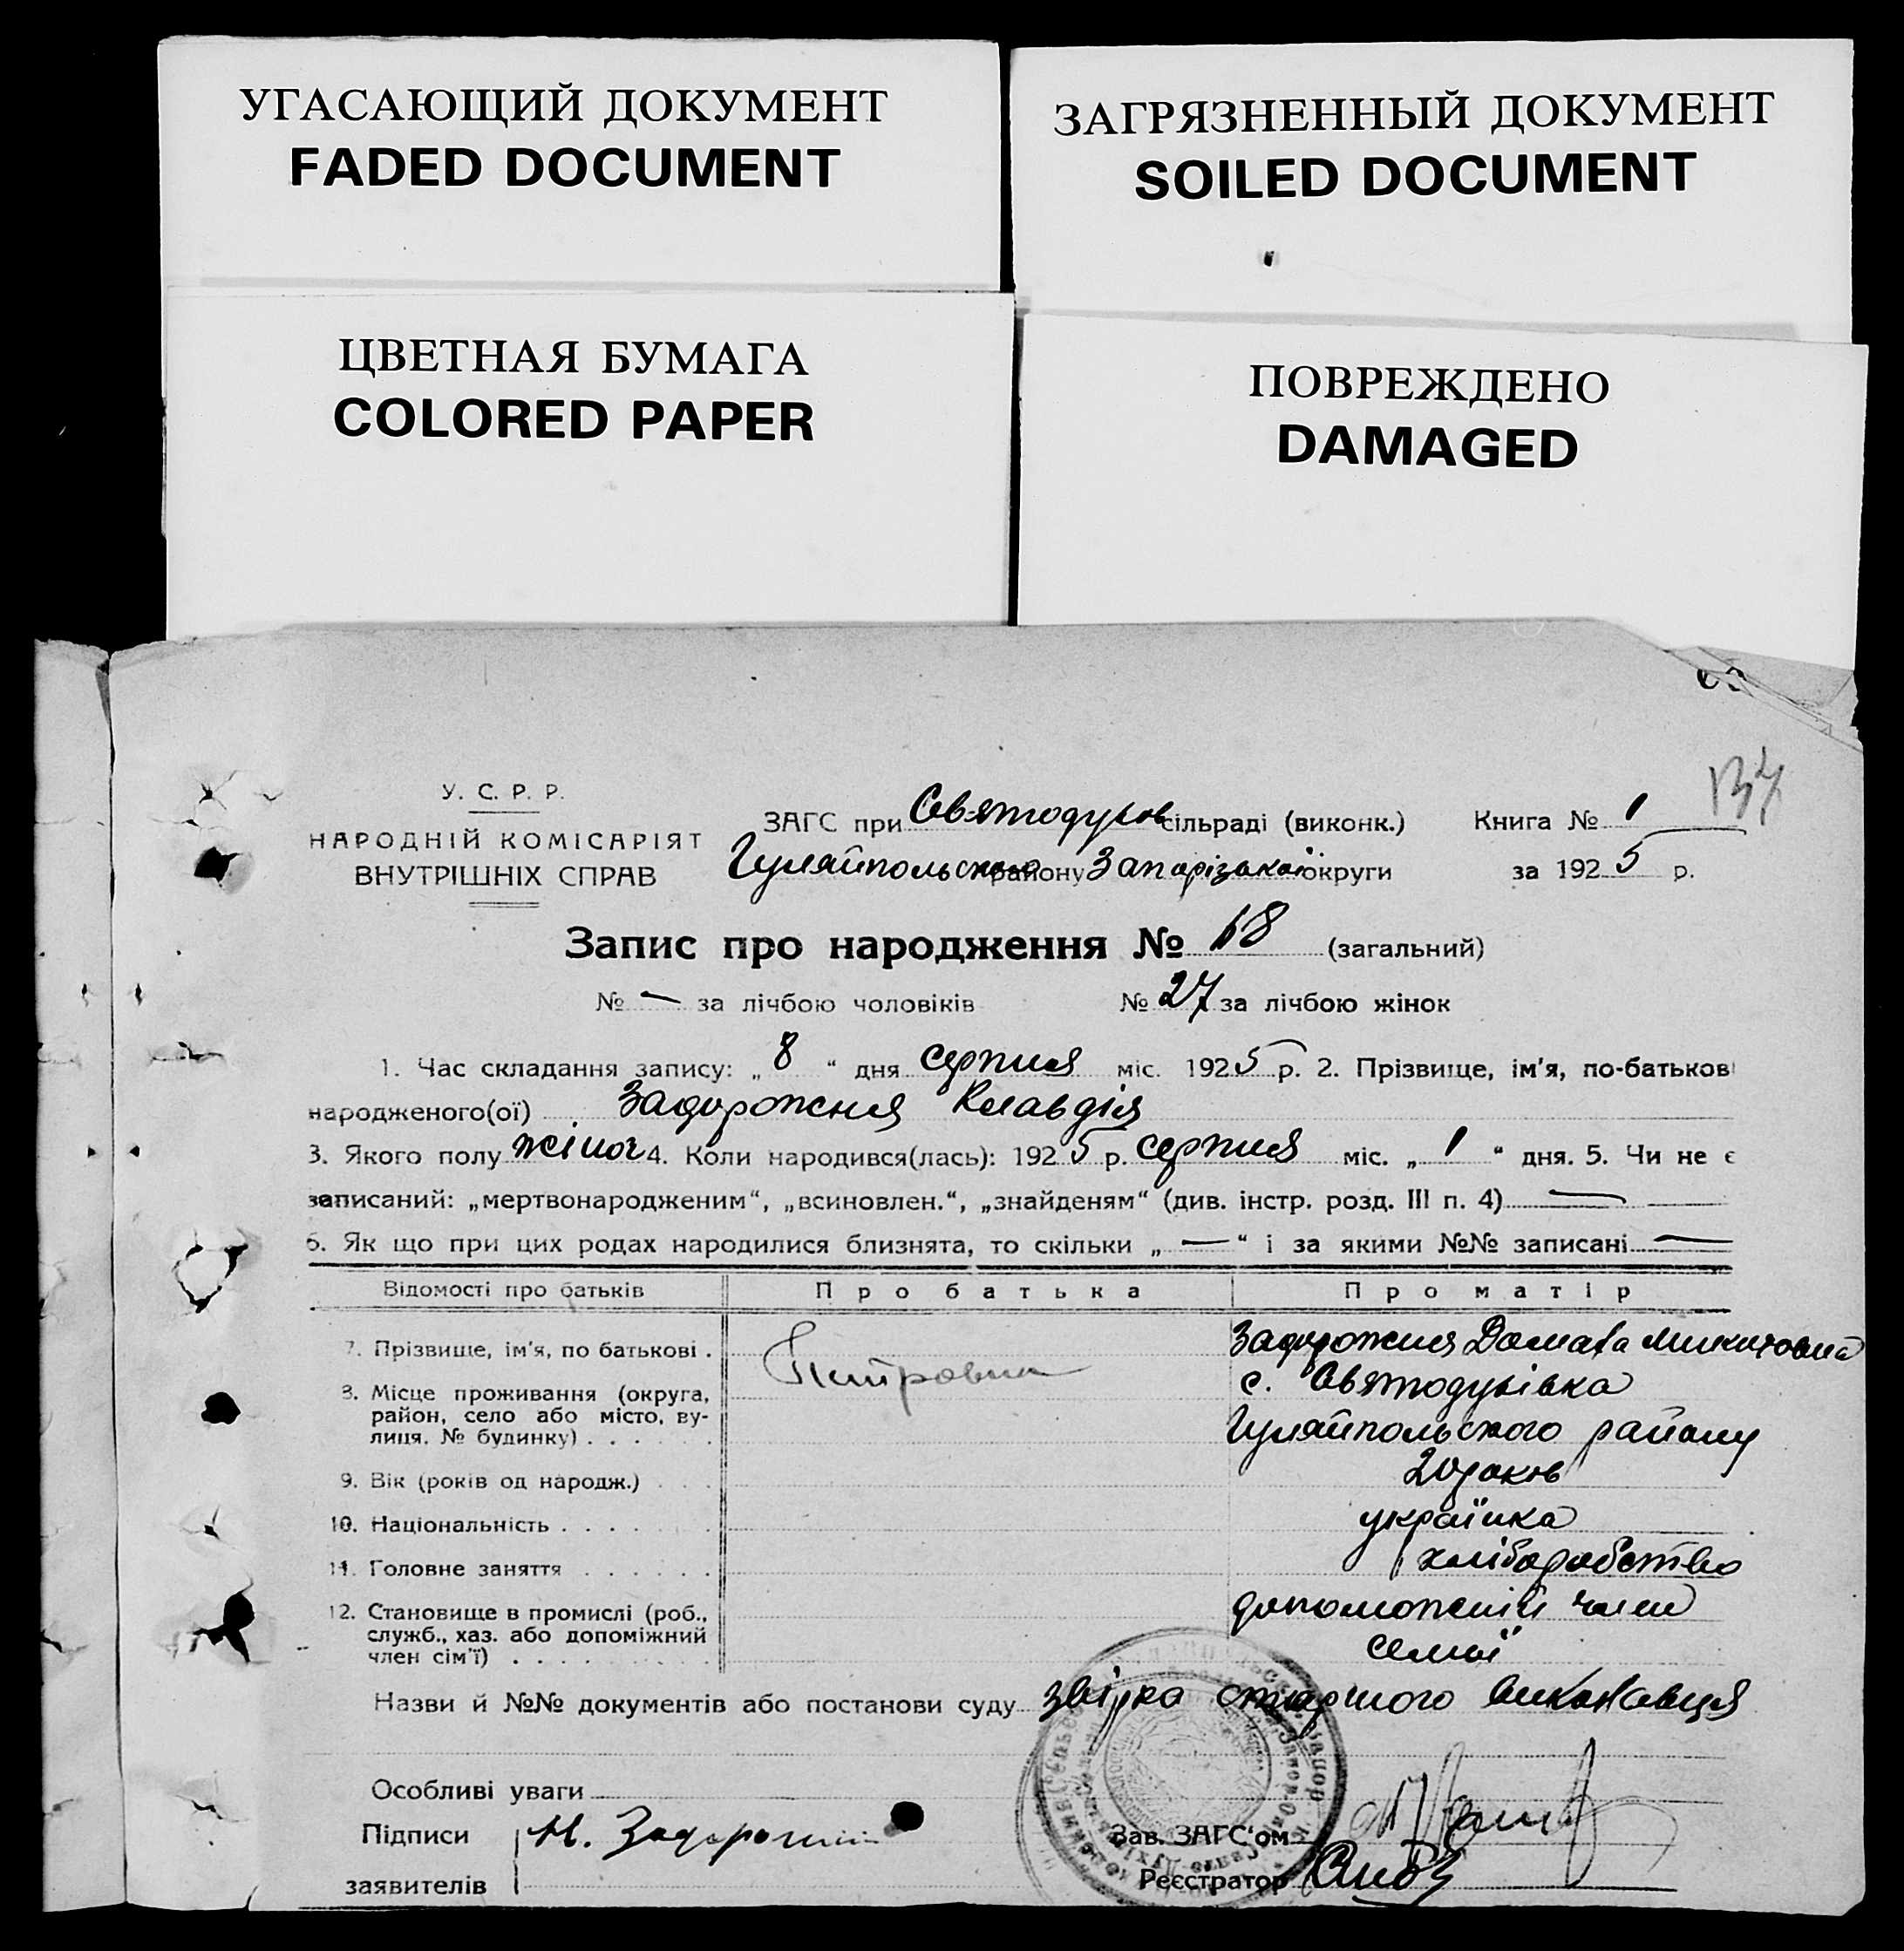 УГАСАЮЩИЙ ДОКУМЕНТ
FADED DOCUMENT
ЗАГРЯЗНЕННЫЙ ДОКУМЕНТ
SOILED DOCUMENT
ЦВЕТНАЯ БУМАГА
COLORED PAPER
ПОВРЕЖДЕНО
DAMAGED
137
У. С. Р. Р.
НАРОДНІЙ КОМІСАРІЯТ
ВНУТРІШНІХ СПРАВ
ЗАГС при Святодухов сільраді (виконк.) Книга № 1
Гуляйпольского району Запорізької округи за 1925 р.
Запис про народження № 68 (загальний)
№ — за лічбою чоловіків № 27 за лічбою жінок
1. Час складання запису: „ 8 “ дня серпня міс. 1925 р. 2. Прізвище, ім’я, по-батькові
народженого(ої) Задорожня Клавдія
3. Якого полу жіноч 4. Коли народився(лась): 1925 р. серпня міс. „ 1 “ дня. 5. Чи не є
записаний: „мертвонародженим“, „всиновлен.“, „знайденям“ (див. інстр. розд. III п. 4) —
6. Як що при цих родах народилися близнята, то скільки „ — “ і за якими №№ записані —
Відомості про батьків Про батька Про матір
7. Прізвище, ім’я, по батькові . Петровна Задорожня Домаха Микитовна
8. Місце проживання (округа, с. Святодухівка
район, село або місто, ву-
лиця, № будинку) . . . . . . Гуляйпольского району
9. Вік (років од народж.) . . . 20 роков
10. Національність . . . . . . українка
11. Головне заняття . . . . . . хліборобство
12. Становище в промислі (роб., допоможній член
служб., хаз. або допоміжний
член сім’ї) . . . . . . . . . семьї
Назви й №№ документів або постанови суду звірка старшого виконавця
Особливі уваги
Підписи Н. Задорожній Зав. ЗАГС‘ом
заявителів Реєстратор